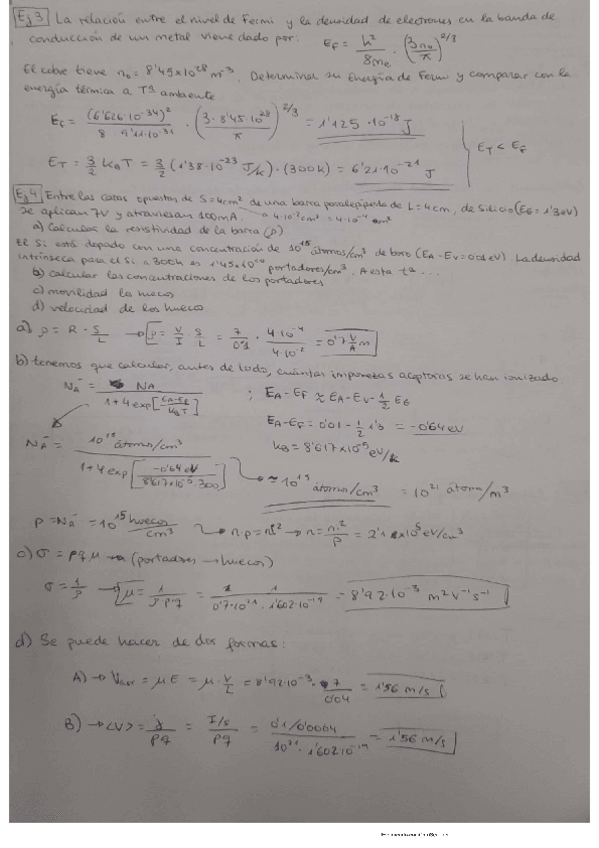 Ej 3 La relación entre el nivel de Fermi y la densidad de electrones en la banda de
conducción de un metal viene dado por: E_F = h²/8m_e · (3n_0/π)^2/3
El cobre tiene n_0 = 8'45×10^28 m^-3. Determinar su Energía de Fermi y comparar con la
energía térmica a Tª ambiente
E_F = (6'626·10^-34)²/8·9'11·10^-31 · (3·8'45·10^28/π)^2/3 = 1'125·10^-18 J
E_T = 3/2 k_B T = 3/2 (1'38·10^-23 J/K)·(300K) = 6'21·10^-21 J
E_T < E_F
Ej 4 Entre las caras opuestas de S=4cm² de una barra paralepípeda de L=4cm, de Silicio (E_G = 1'3eV)
se aplican 7V y atraviesan 100mA.
a) Calcular la resistividad de la barra (ρ)
El Si está dopado con una concentración de 10^15 átomos/cm³ de boro (E_A - E_V = 0'01 eV). La densidad
intrínseca para el Si a 300K es 1'45×10^10 portadores/cm³. A esta tª...
b) calcular las concentraciones de los portadores
c) movilidad la huecos
d) velocidad de los huecos
a) ρ = R · S/L → ρ = V/I · S/L = 7/0'1 · 4·10^-4/4·10^-2 = 0'7 V/A m
b) tenemos que calcular, antes de todo, cuántas impurezas aceptoras se han ionizado
N_A^- = N_A/1+4exp[E_A-E_F/k_B T] ; E_A - E_F ≈ E_A - E_V - 1/2 E_G
E_A - E_F = 0'01 - 1/2 1'3 = -0'64 eV
k_B = 8'617×10^-5 eV/K
N_A^- = 10^15 átomos/cm³/1+4exp[-0'64 eV/8'617×10^-5·300] ≈ 10^15 átomos/cm³ = 10^21 átom/m³
p = N_A^- = 10^15 huecos/cm³ → n·p = n_i² → n = n_i²/p = 2'1×10^5 eV/cm³
c) σ = p q μ → (portadores → huecos)
σ = 1/ρ → μ = 1/ρ·p·q = 1/0'7·10^21·1'602·10^-19 = 8'92·10^-3 m² V^-1 s^-1
d) Se puede hacer de dos formas:
A) → = μE = μ · V/L = 8'92·10^-3 · 7/0'04 = 1'56 m/s
B) → <V> = J/pq = I/s/pq = 0'1/0'0004/10^21·1'602·10^-19 = 1'56 m/s